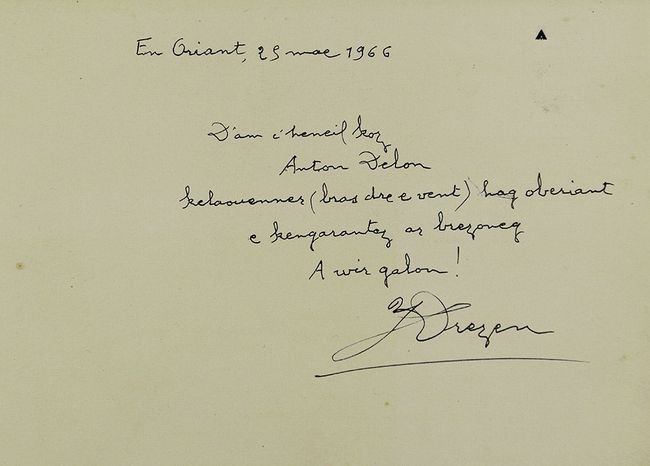 En Oriant, 25 mae 1966
D'am c'heneil koz
Anton Delon
kelaouenner (bras dre e vent) hag oberiant
e kengarantez ar brezoneg
A wir galon!
Y Drezen